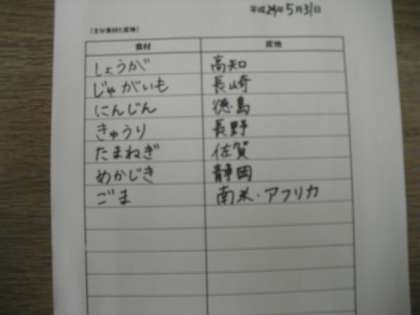 平成24年5月31日
食材 産地
しょうが 高知
じゃがいも 長崎
にんじん 徳島
きゅうり 長野
たまねぎ 佐賀
めかじき 静岡
ごま 南米・アフリカ